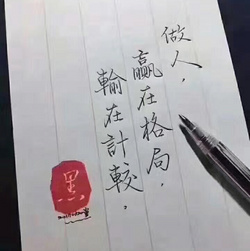 做人，
赢在格局，
輸在計較。
黑